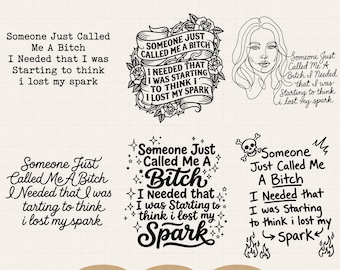 Someone Just Called
Me A Bitch
I Needed that I was
Starting to think
i lost my spark
SOMEONE JUST
CALLED ME A BITCH
I NEEDED THAT
I WAS STARTING
TO THINK
I LOST MY SPARK
Someone Just
Called Me A
Bitch I Needed
that I was
Starting to think
i lost my spark
Someone Just
Called Me A Bitch
I Needed that I was
tarting to think
i lost my spark
Someone Just
Called Me A
Bitch
I Needed that
I was Starting to
think i lost my
Spark
Someone
Just Called Me
A Bitch
I Needed that
I was Starting
to think i lost my
Spark